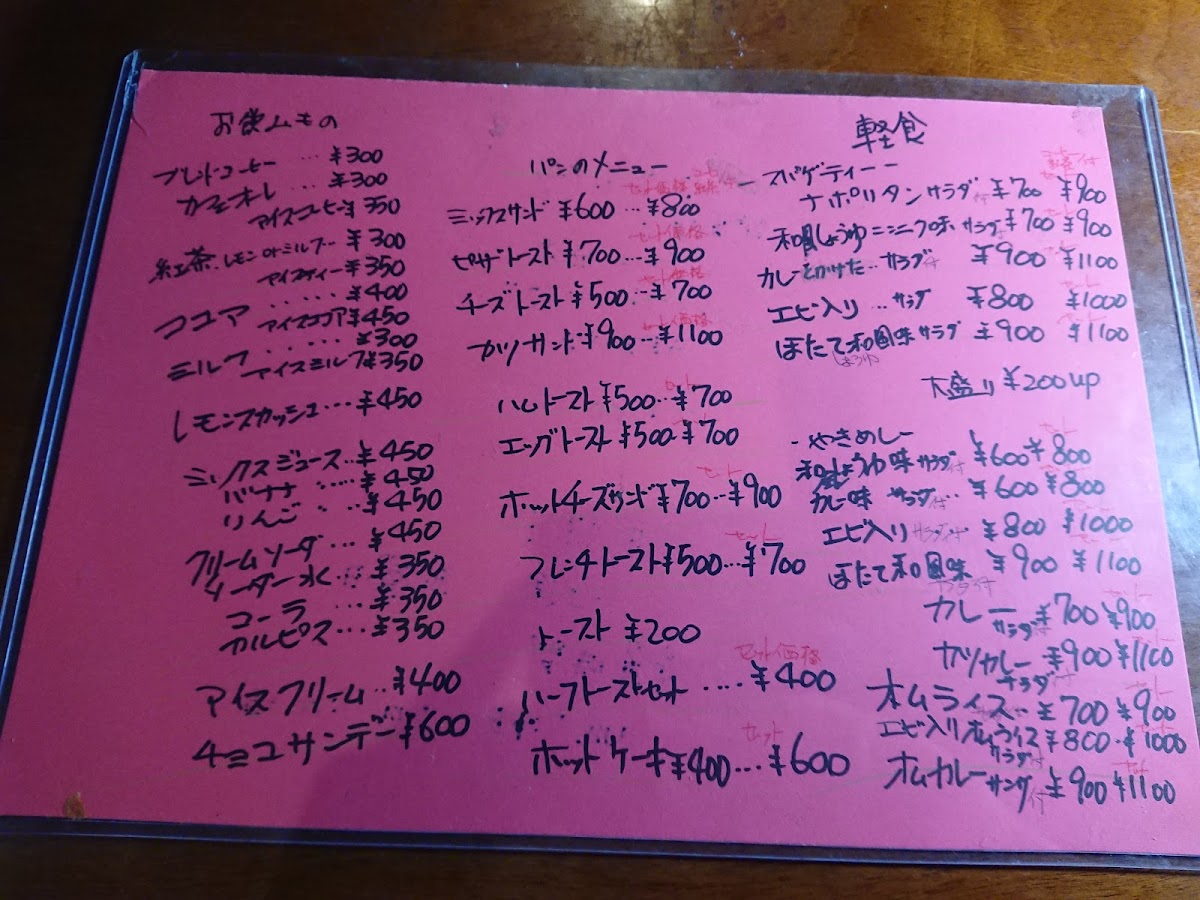 お飲みもの
ブレンドコーヒー … ¥300
カフェオレ … ¥300
アイスコーヒー ¥350
紅茶 レモンorミルク… ¥300
アイスティー ¥350
ココア …… ¥400
アイスココア ¥450
ミルク …… ¥300
アイスミルク ¥350
レモンスカッシュ … ¥450
ミックスジュース … ¥450
バナナ …… ¥450
りんご … ¥450
クリームソーダ … ¥450
ソーダー水 … ¥350
コーラ … ¥350
カルピス … ¥350
アイスクリーム … ¥400
チョコサンデー ¥600
パンのメニュー
セット価格
ミックスサンド ¥600 … ¥800
セット価格
ピザトースト ¥700 … ¥900
セット価格
チーズトースト ¥500 … ¥700
セット価格
カツサンド ¥900 … ¥1100
セット
ハムトースト ¥500 … ¥700
セット
エッグトースト ¥500 ¥700
セット
ホットチーズサンド ¥700 … ¥900
セット
フレンチトースト ¥500 … ¥700
トースト ¥200
セット価格
ハーフトーストセット …. ¥400
セット
ホットケーキ ¥400 … ¥600
軽食
ースパゲティーー
ナポリタン サラダ付 ¥700 ¥900
和風しょうゆニンニク味 サラダ付 ¥700 ¥900
カレーをかけた… サラダ付 ¥900 ¥1100
エビ入り … サラダ ¥800 ¥1000
ほたて和風味 サラダ ¥900 ¥1100
しょうゆ
大盛り ¥200up
-やきめしー
和風しょうゆ味 サラダ付 ¥600 ¥800
カレー味 サラダ付 … ¥600 ¥800
エビ入り サラダ付 ¥800 ¥1000
ほたて和風味 ¥900 ¥1100
サラダ付
カレー サラダ付 ¥700 ¥900
カツカレー サラダ ¥900 ¥1100
オムライス … ¥700 ¥900
エビ入りオムライス ¥800 … ¥1000
サラダ付
オムカレー サラダ付 ¥900 ¥1100